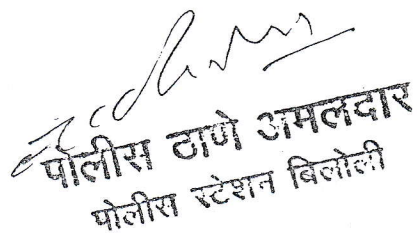 पोलीस ठाणे अमलदार
पोलीस स्टेशन बिलोली